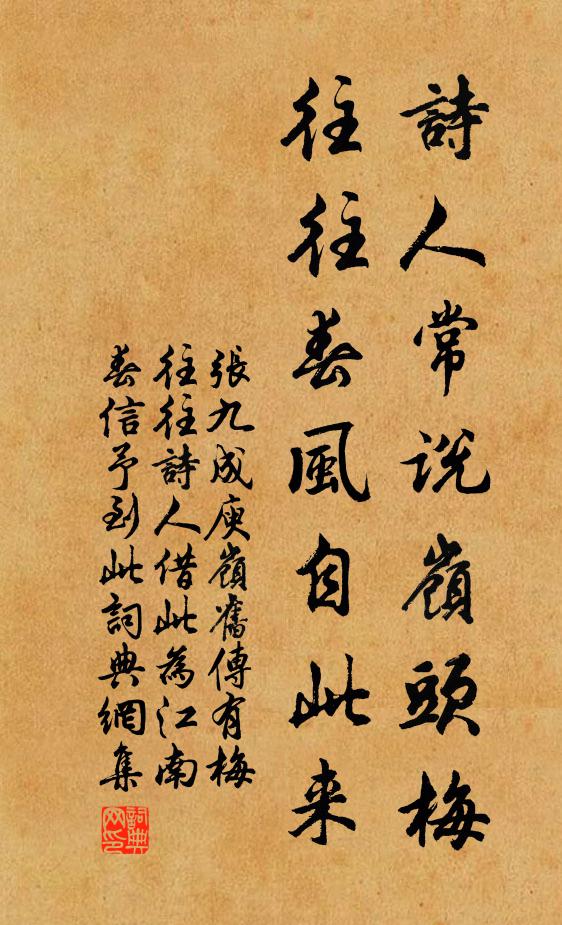 詩人常說嶺頭梅
往往春風自此来
張九成庾嶺舊傳有梅
往往詩人借此為江南
春信予到此詞典網集
詞典
网印